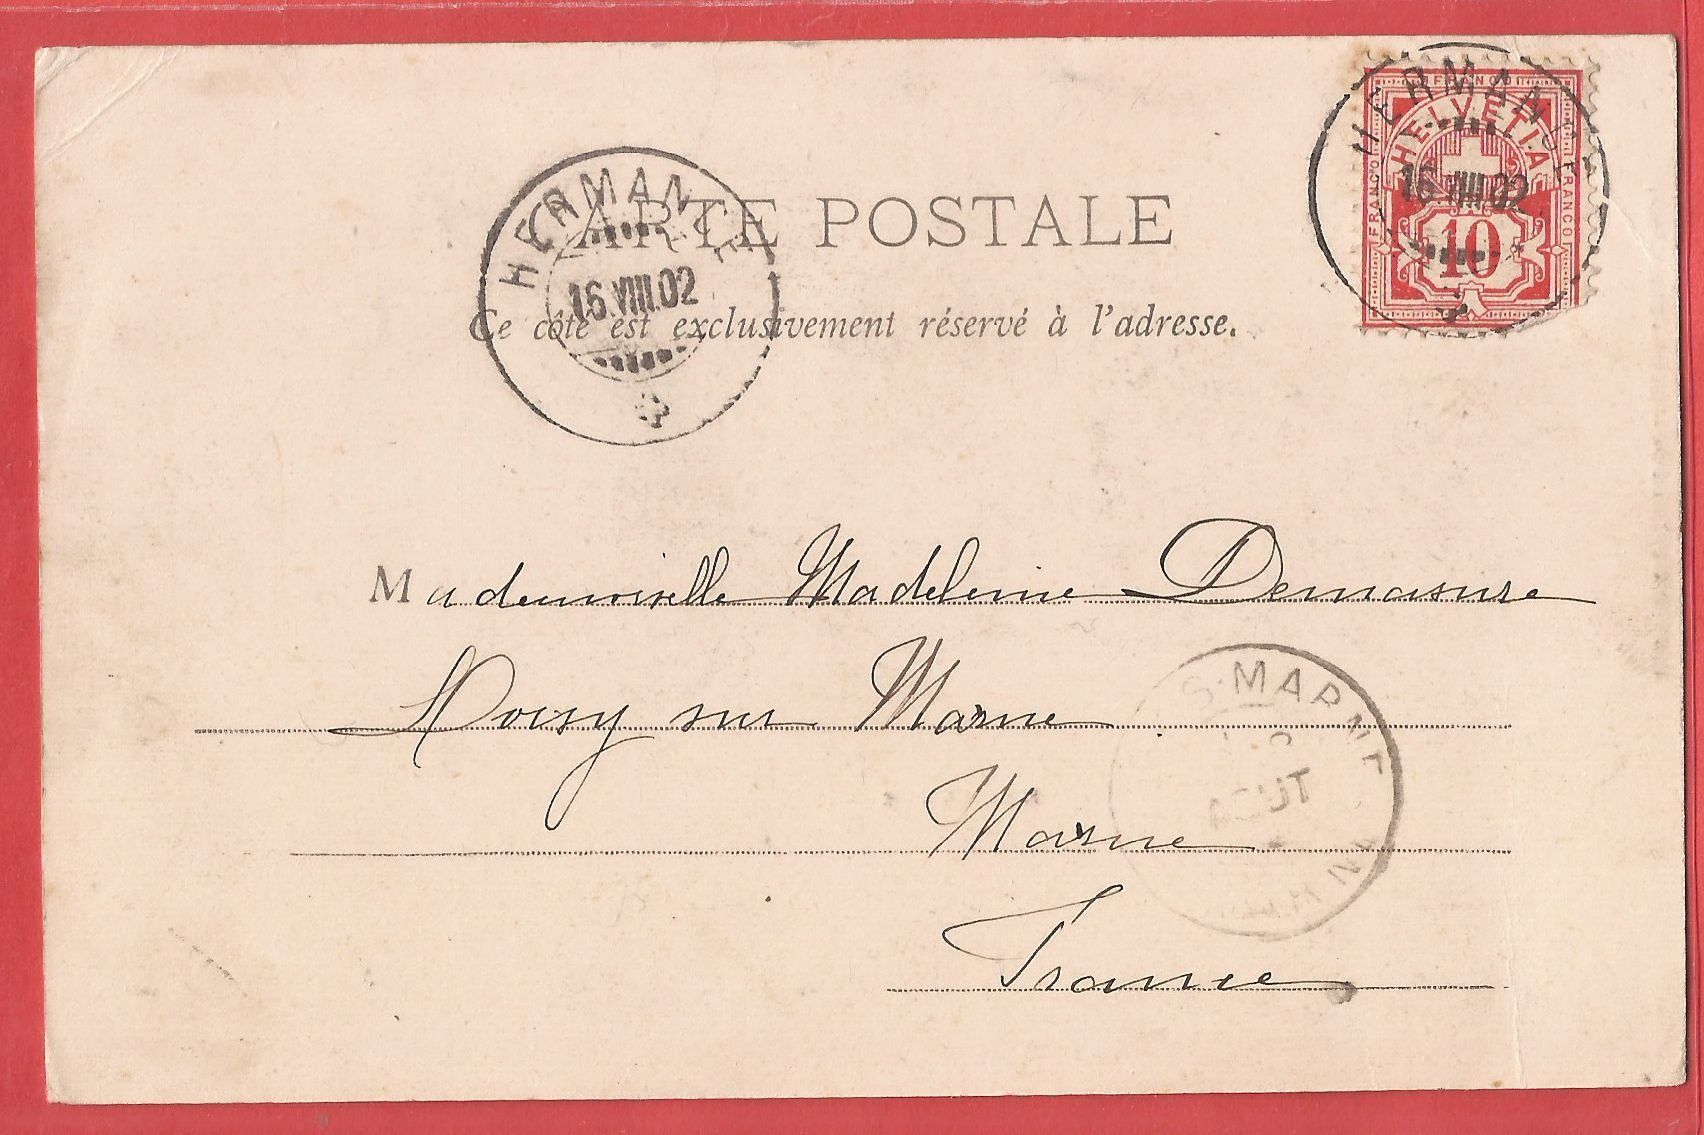 CARTE POSTALE
Ce côté est exclusivement réservé à l'adresse.
HERMANCE
16.VIII.02
FRANCO
HELVETIA
FRANCO
FRANCO
10
HERMANCE
16.VIII.02
Mademoiselle Madeleine Demasure
Noisy sur Marne
Marne
France
S-MARNE
AOUT